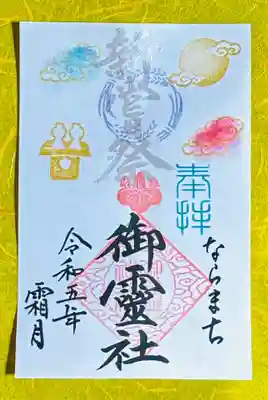 新嘗祭
奉拝
ならまち
御靈社
令和五年
霜月